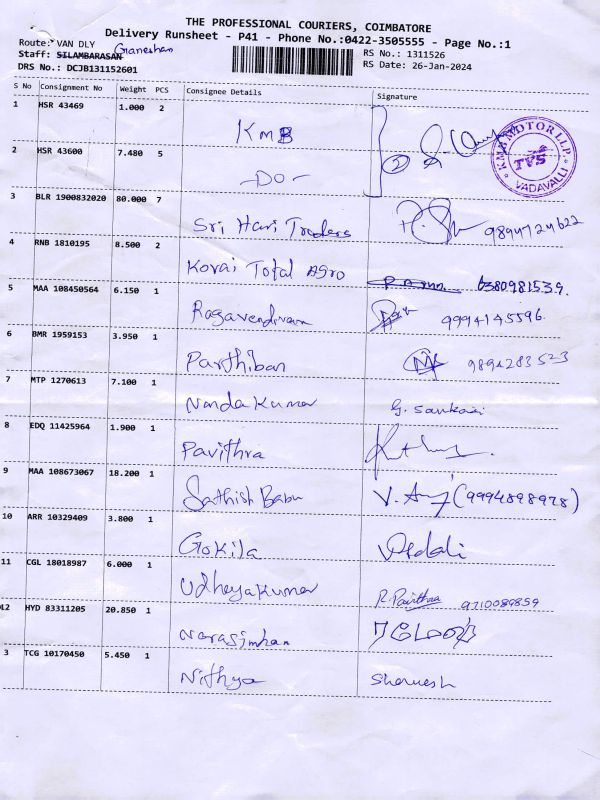 THE PROFESSIONAL COURIERS, COIMBATORE
Delivery Runsheet - P41 - Phone No.:0422-3505555 - Page No.:1
Route: VAN DLY
RS No.: 1311526
Staff: SILAMBARASAN Ganeshan
RS Date: 26-Jan-2024
DRS No.: DCJB131152601
S No Consignment No Weight PCS Consignee Details Signature
1 HSR 43469 1.000 2 KMB
2 HSR 43600 7.480 5 -DO- 2
KMB MOTOR LLP TVS VADAVALLI
3 BLR 1900832020 80.000 7 Sri Hari Traders 9894724622
4 RNB 1810195 8.500 2 Kovai Total Agro 6380981539.
5 MAA 108450564 6.150 1 Ragavendiran 9994145596.
6 BMR 1959153 3.950 1 Parthiban 9894283523
7 MTP 1270613 7.100 1 Nandakumar G. Sankari
8 EDQ 11425964 1.900 1 Pavithra
9 MAA 108673067 18.200 1 Sathish Babu (9994898928)
10 ARR 10329409 3.800 1 Gokila
11 CGL 18018987 6.000 1 Udhayakumar R. Pavithra 9710089859
12 HYD 83311205 20.850 1 Narasimhan
3 TCG 10170450 5.450 1 Nithya Sharvesh